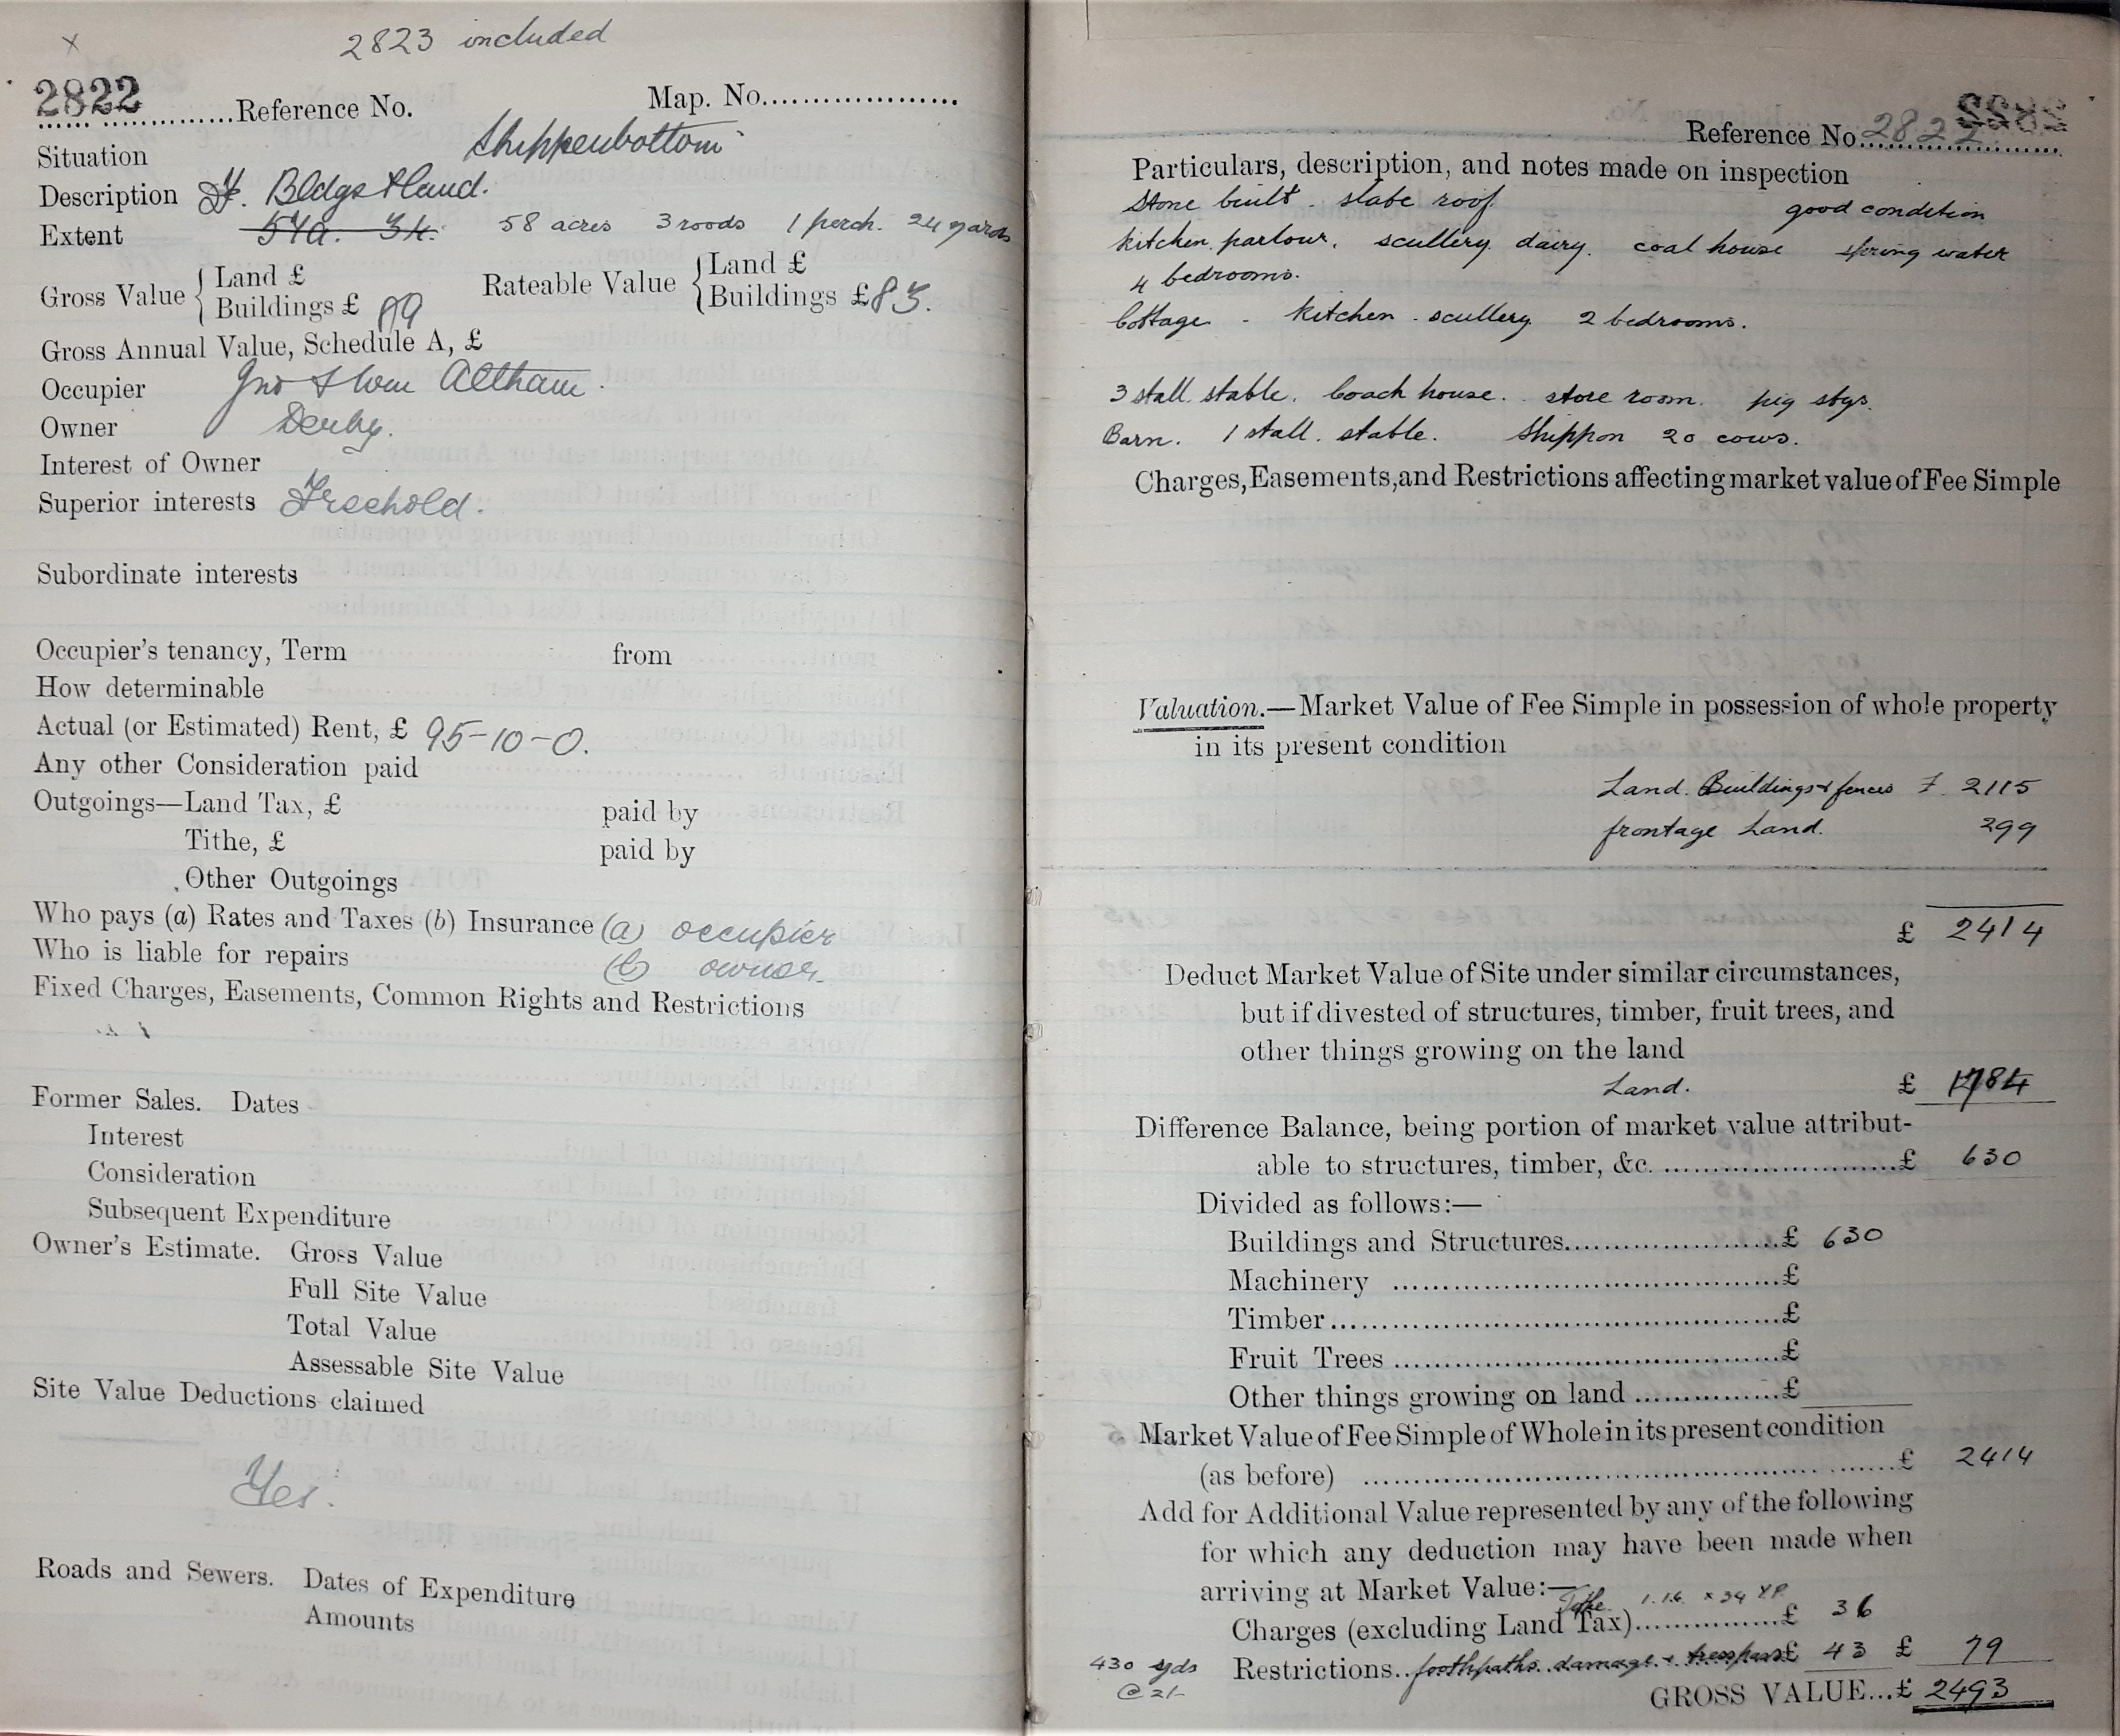 2823 included
x
2822 Reference No. Map. No.
Situation Shippenbottom
Description F. Bldgs & land.
Extent 54a. 3r. 58 acres 3 roods 1 perch. 24 yards
Gross Value { Land £
Buildings £ 89
Rateable Value { Land £
Buildings £ 83.
Gross Annual Value, Schedule A, £
Occupier Jno & Wm Altham.
Owner Derby.
Interest of Owner
Superior interests Freehold.
Subordinate interests
Occupier's tenancy, Term from
How determinable
Actual (or Estimated) Rent, £ 95-10-0.
Any other Consideration paid
Outgoings—Land Tax, £ paid by
Tithe, £ paid by
Other Outgoings
Who pays (a) Rates and Taxes (b) Insurance (a) occupier
Who is liable for repairs (b) owner
Fixed Charges, Easements, Common Rights and Restrictions
Former Sales. Dates
Interest
Consideration
Subsequent Expenditure
Owner's Estimate. Gross Value
Full Site Value
Total Value
Assessable Site Value
Site Value Deductions claimed
Yes.
Roads and Sewers. Dates of Expenditure
Amounts
Reference No. 2822
Particulars, description, and notes made on inspection
Stone built. slate roof. good condition
kitchen. parlour. scullery. dairy. coal house spring water
4 bedrooms.
Cottage - kitchen. scullery 2 bedrooms.
3 stall. stable. Coach house. store room. pig stys.
Barn. 1 stall. stable. Shippon 20 cows.
Charges, Easements, and Restrictions affecting market value of Fee Simple
Valuation.—Market Value of Fee Simple in possession of whole property
in its present condition
Land. Buildings & fences £ 2115
frontage Land. 299
£ 2414
Deduct Market Value of Site under similar circumstances,
but if divested of structures, timber, fruit trees, and
other things growing on the land
Land. £ 1784
Difference Balance, being portion of market value attribut-
able to structures, timber, &c. £ 630
Divided as follows:—
Buildings and Structures £ 630
Machinery £
Timber £
Fruit Trees £
Other things growing on land £
Market Value of Fee Simple of Whole in its present condition
(as before) £ 2414
Add for Additional Value represented by any of the following
for which any deduction may have been made when
arriving at Market Value:—
Tithe 1.1.6. x 34 YP.
Charges (excluding Land Tax) £ 36
430 yds Restrictions footpaths. damage & tresspass £ 43 £ 79
@ 2/-
GROSS VALUE...£ 2493